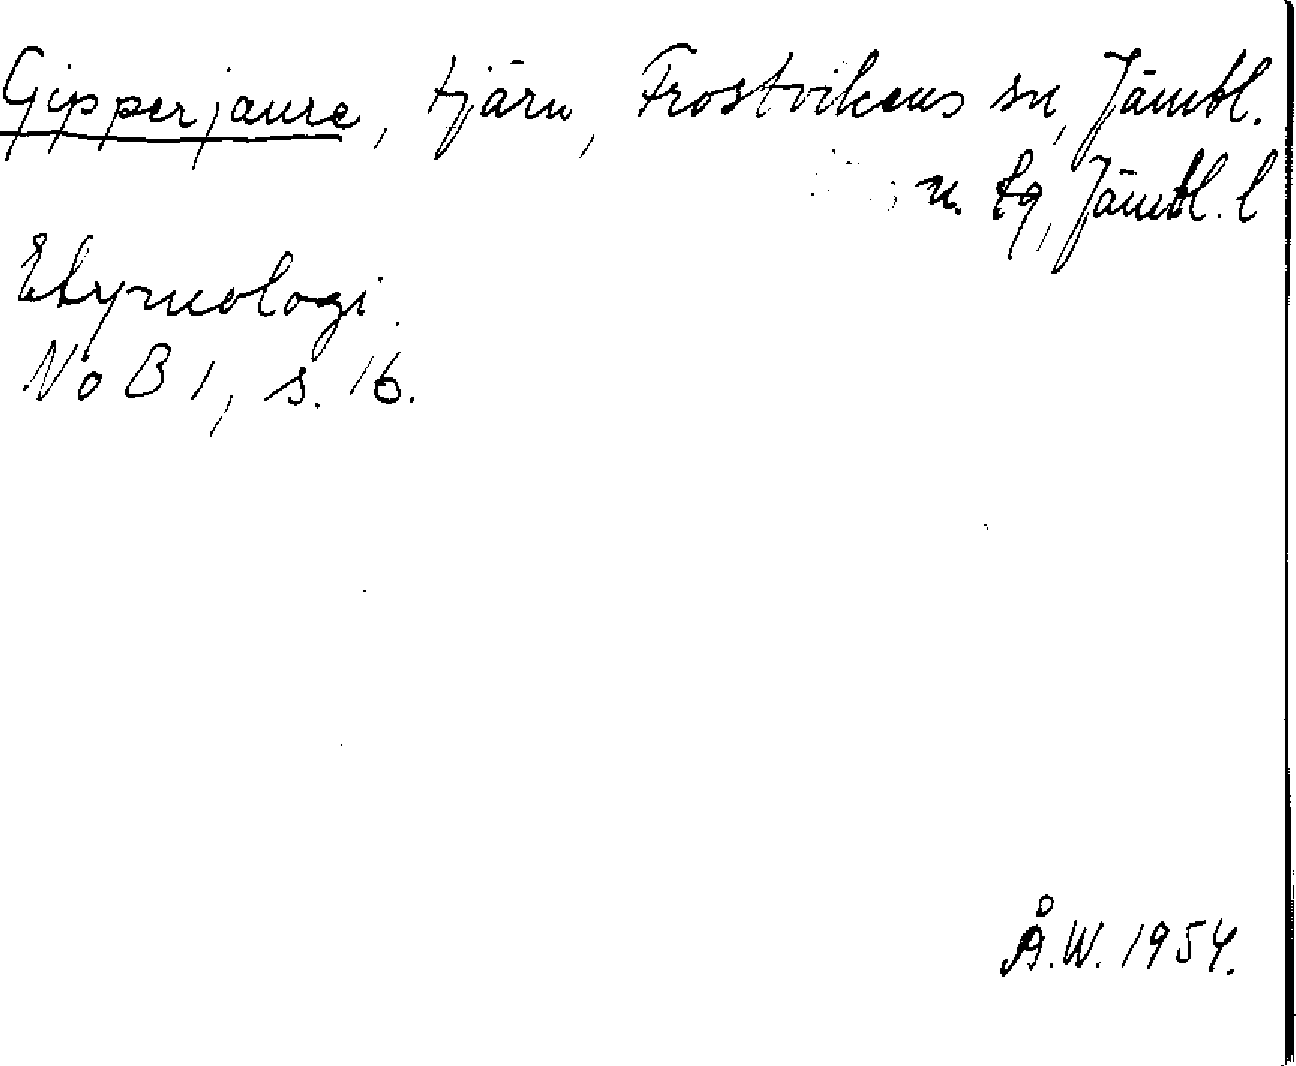 Gipperjaure, tjärn, Frostvikens sn, Jämtl.
n. tg, Jämtl. l
Etymologi.
NoB 1, s. 16.
Å.W. 1954.